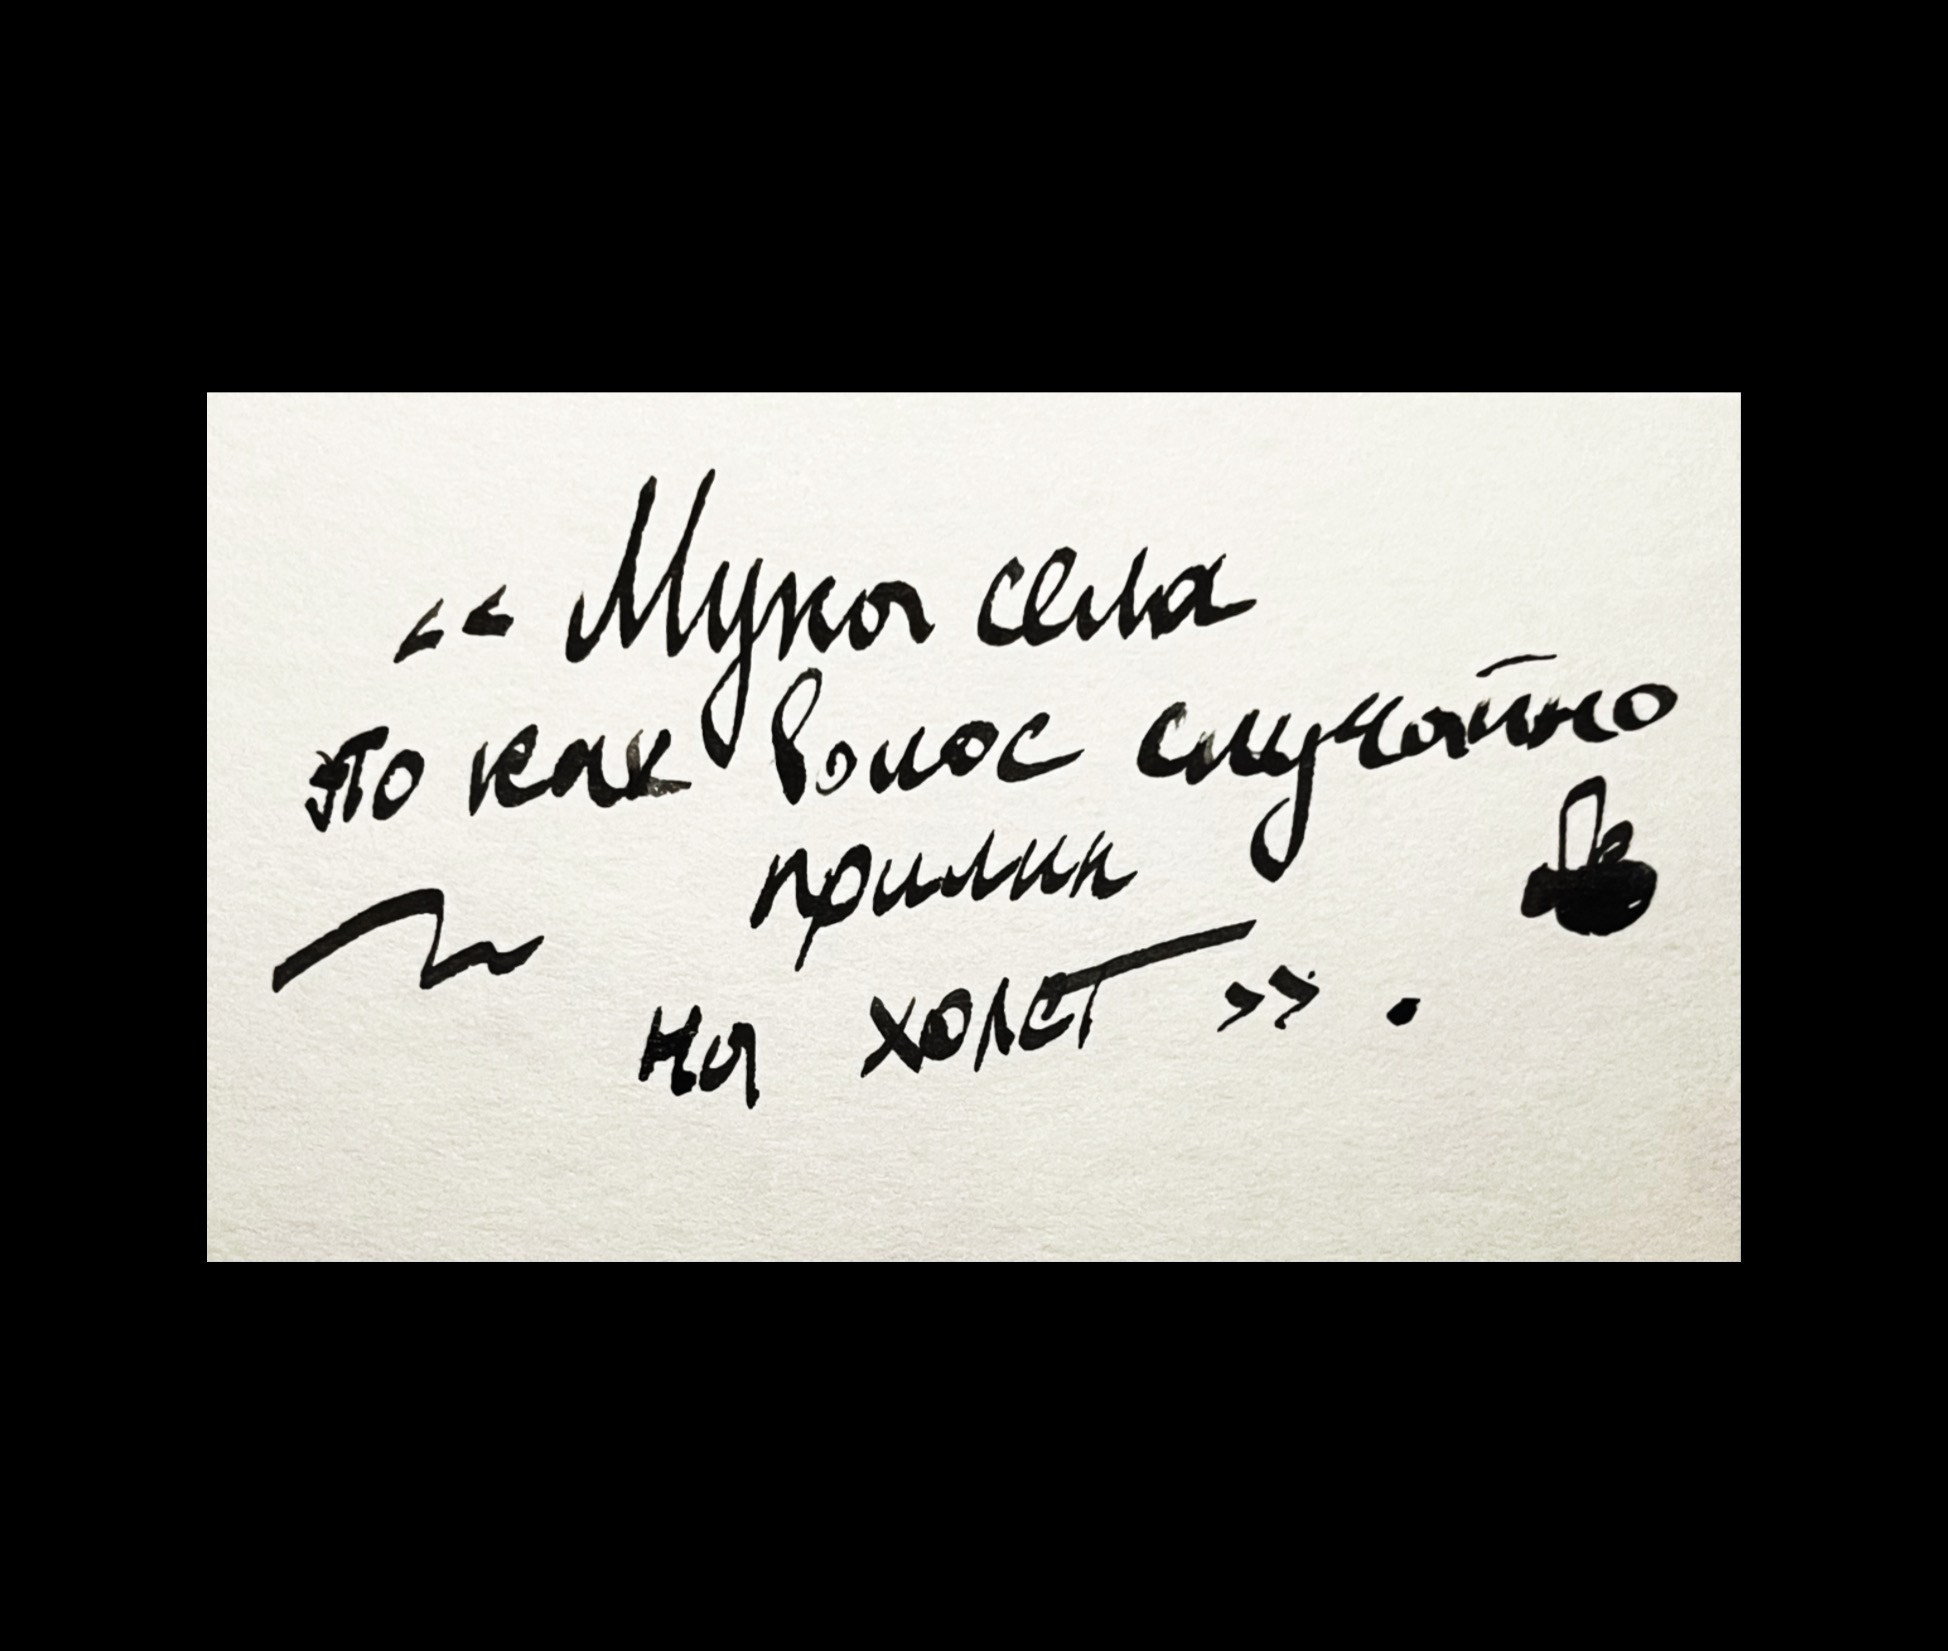 “ Мука села
это как волос случайно
прилип
на холст ».